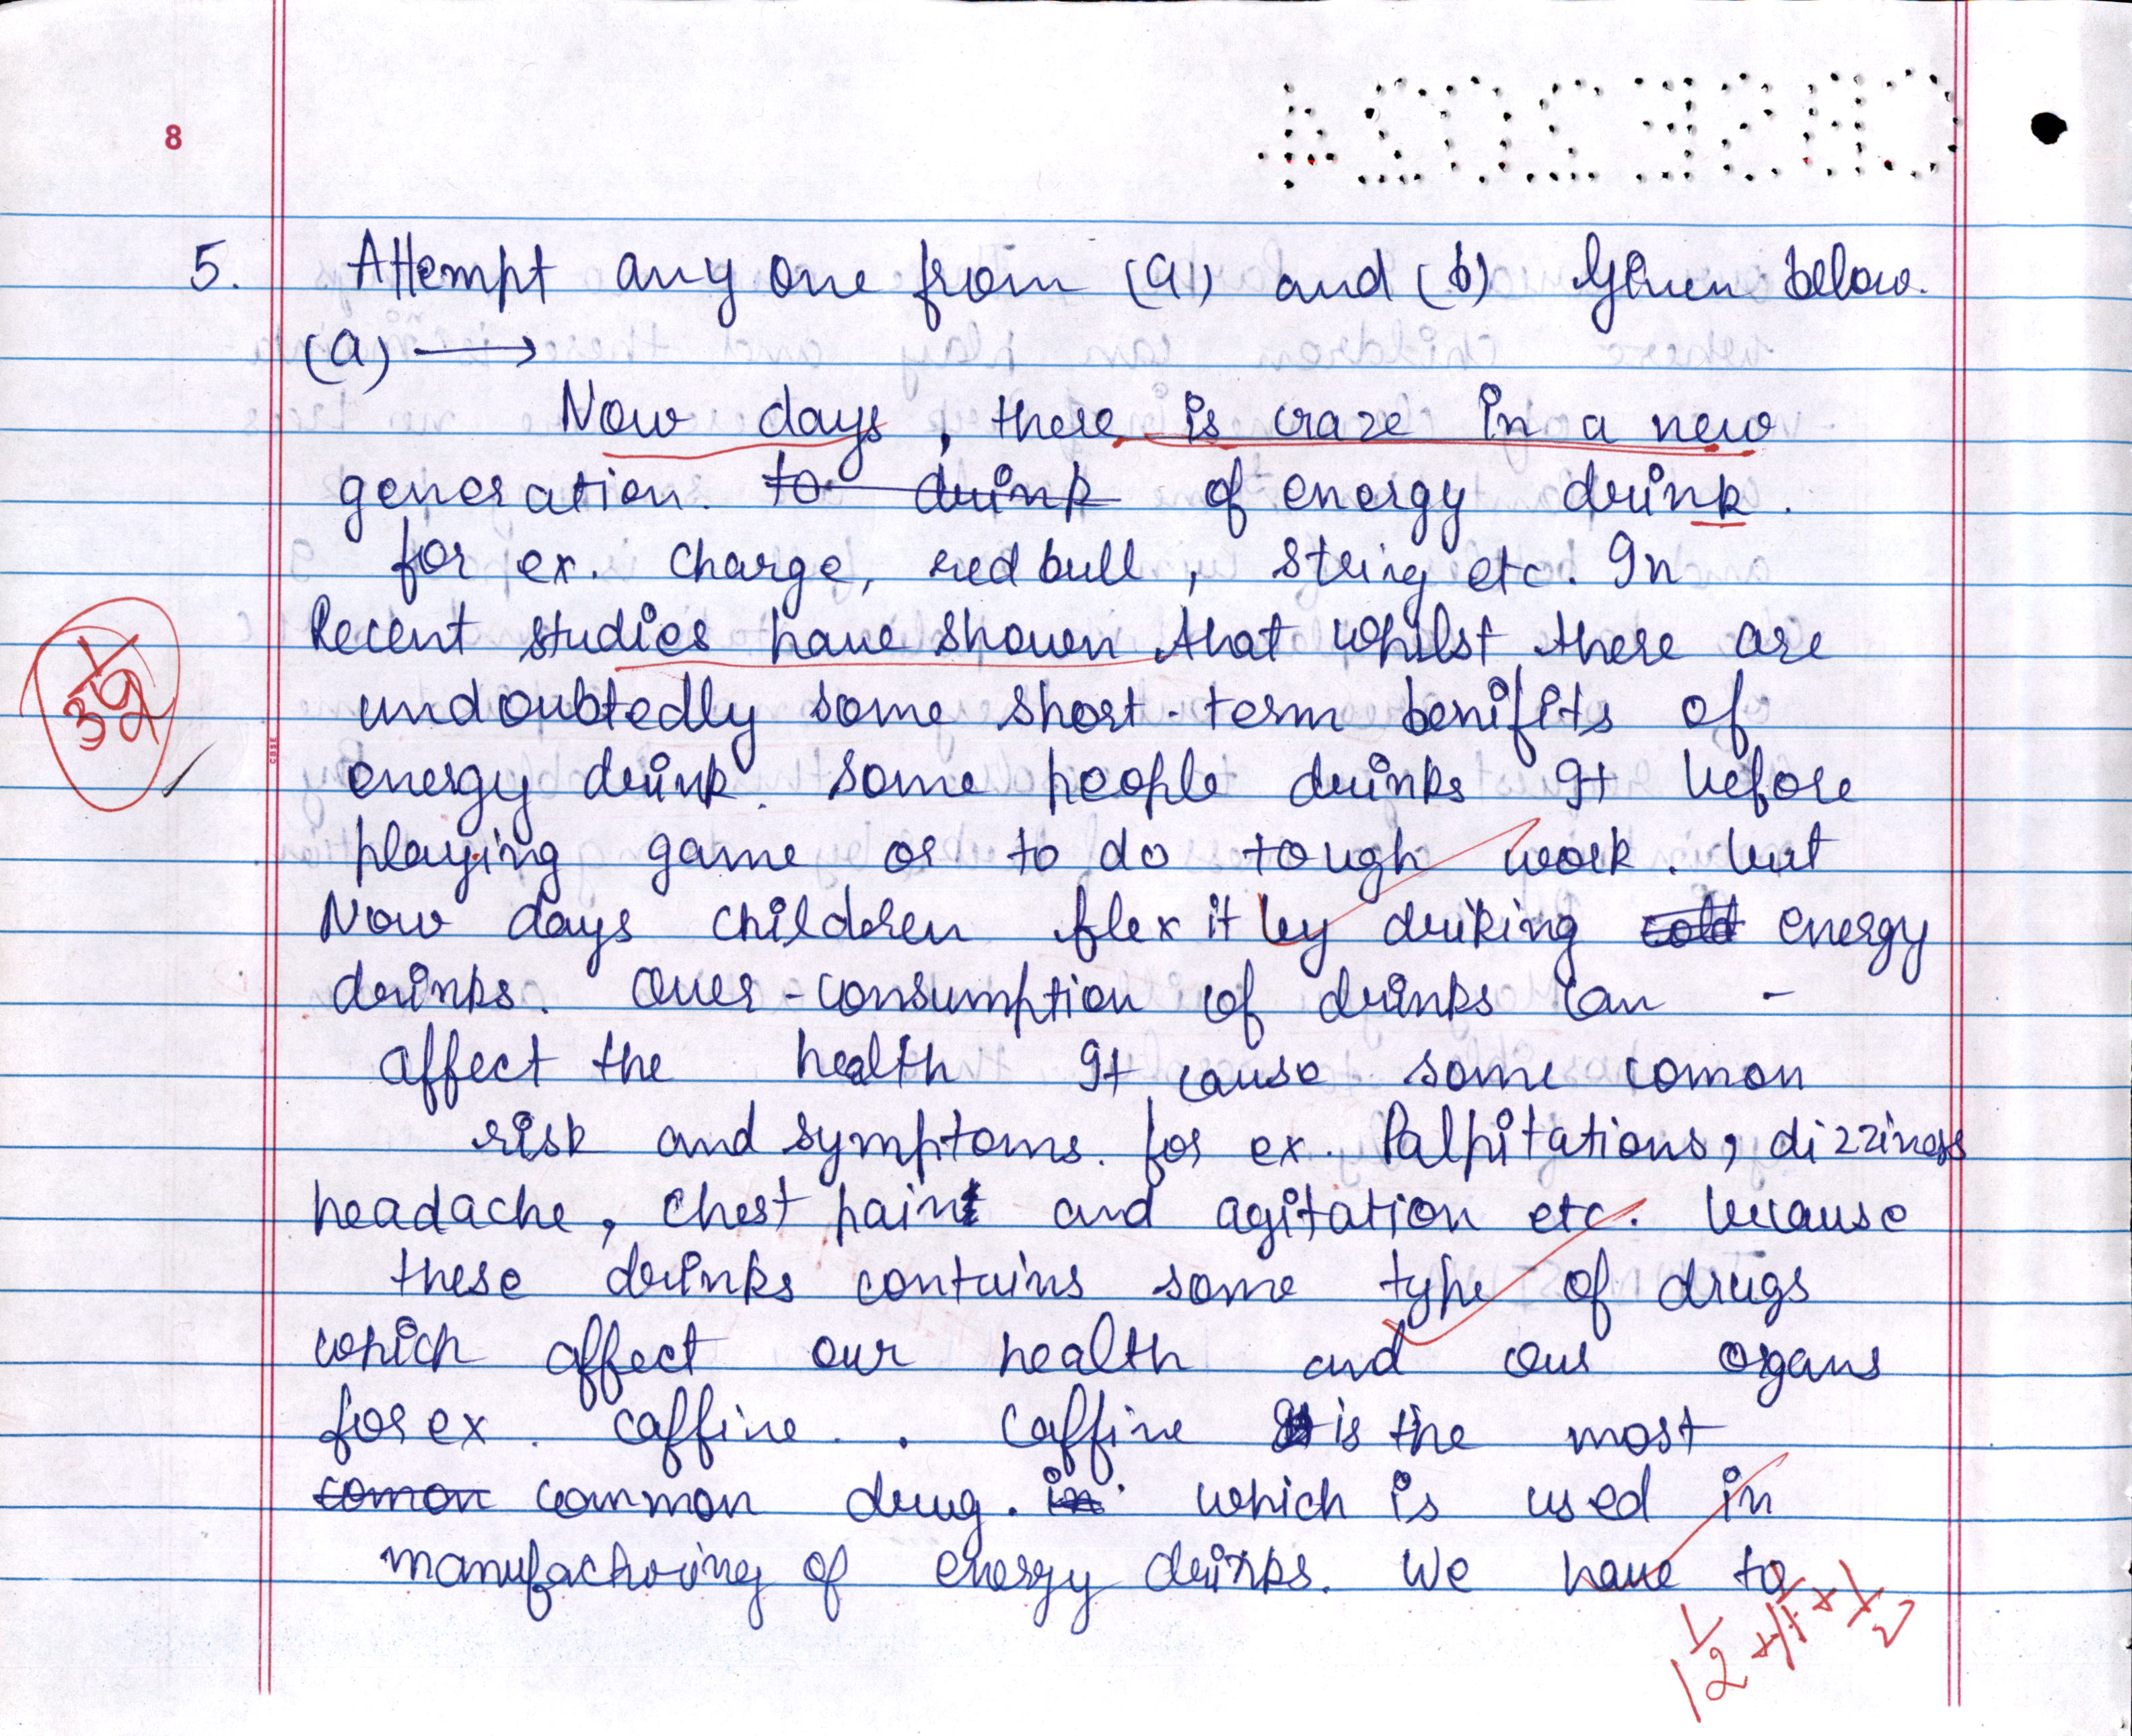 8
CBSE2024
5. Attempt any one from (a) and (b) Given below.
(a) →
Now days, there is craze in a new
generation. to drink of energy drink.
for ex. Charge, red bull, String etc. In
Recent studies have shown that whilst there are
undoubtedly some short-term benifits of
energy drink. Some people drinks It before
playing game or to do tough work. but
Now days children flex it by driking cold energy
drinks. Over-consumption of drinks can -
affect the health It cause some comon
risk and symptoms. for ex. Palpitations, dizziness
headache, chest pain and agitation etc. because
these drinks contains some type of drugs
which affect our health and our organs
for ex. caffine. . Caffine is the most
comon common drug. in which is used in
manufachuring of energy drinks. We have to
3 1/2
CBSE
1 1/2 + 1 1/2 + 1/2